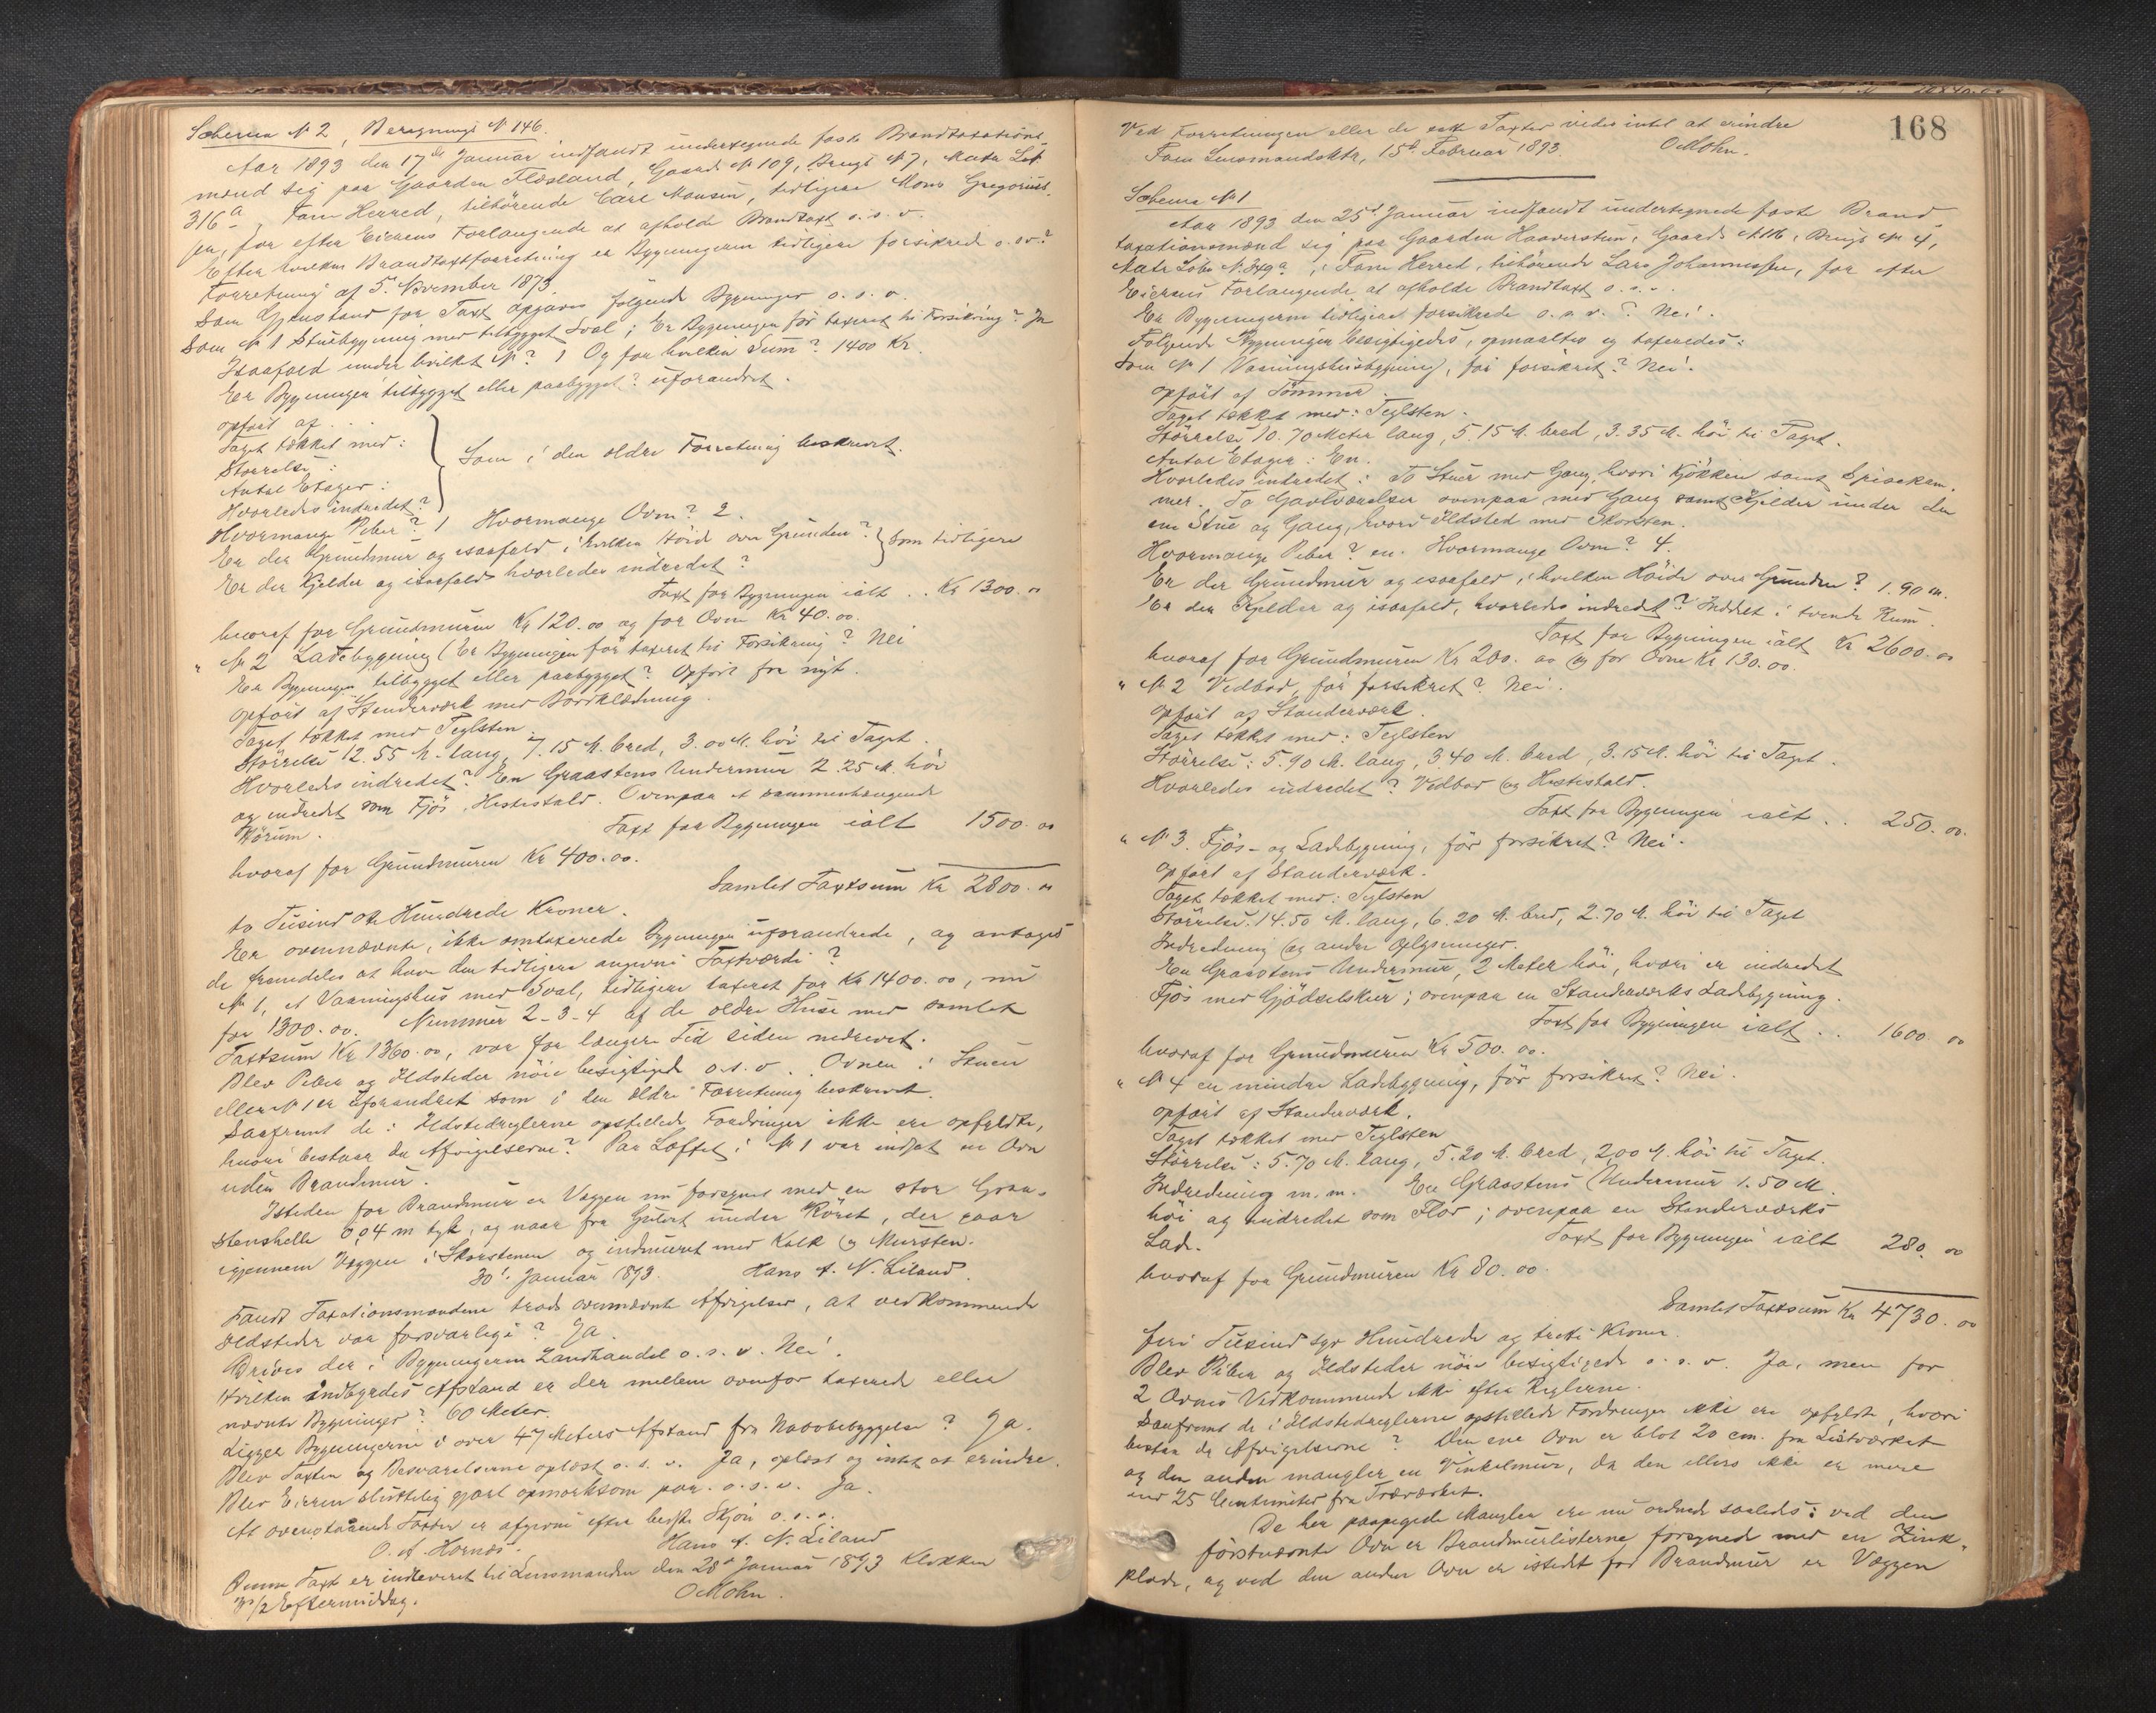 Schema № 2, Beregnings № 146.
Aar 1893 den 17de Januar indfandt undertegnede faste Brandtaxations
mænd sig paa Gaarden Flesland, Gaards № 109, Brugs № 7, Matr Løb
316a, Fane Herred, tilhörende Carl Monsen, tidligere Mons Gregorius-
sen, for efter Eierens Forlangende at afholde Brandtaxt o. s. v.
Efter hvilken Brandtaxtforretning er Bygningerne tidligere forsikrede o. s. v.?
Forretning af 5. November 1873.
Som Gjenstand for Taxt opgaves følgende Bygninger o. s. v.
Som № 1 Stuebygning med tilbygget Sval; Er Bygningen før taxeret til Forsikring? Ja
Isaafald under hvilket №? 1 Og for hvilken Sum? 1400 Kr.
Er Bygningen tilbygget eller paabygget? uforandret.
opført af . . .
Taget tækket med:
Størrelse:
Antal Etager:
Hvorledes indredet?
Som i den ældre Forretning beskrevet.
Hvormange Piber? 1 Hvormange Ovne? 2.
Er der Grundmur og isaafald i hvilken Höide over Grunden?
Er der Kjelder og isaafald hvorledes indredet?
Som tidligere
Taxt for Bygningen ialt . . Kr 1300. 00
hvoraf for Grundmuren Kr 120. 00 og for Ovne Kr 40. 00.
" № 2 Ladebygning (Er Bygningen før taxeret til Forsikring? Nei
Er Bygningen tilbygget eller paabygget? Opført fra nyt.
Opført af Stenderværk med Bordklædning.
Taget tækket med Teglsten.
Størrelse 12.55 M. lang, 7.15 M. bred, 3.00 M. høi til Taget.
Hvorledes indredet? En Graastens Undermur 2.25 M. høi
og indredet som Fjøs, Hestestald. Ovenpaa et sammenhængende
Hørum. Taxt for Bygningen ialt 1500. 00
hvoraf for Grundmuren Kr 400. 00.
Samlet Taxtsum Kr 2800. 00
to Tusind otte Hundrede Kroner.
Er ovennævnte, ikke omtaxerede Bygninger uforandrede, og antages
de fremdeles at have den tidligere angivne Taxtværdi?
№ 1, et Vaaningshus med Sval, tidligere taxeret for Kr 1400. 00, nu
for 1300. 00. Nummer 2-3-4 af de ældre Huse med samlet
Taxtsum Kr 1360. 00, var for længere Tid siden nedrevet.
Blev Piber og Ildsteder nöie besigtiget o. s. v. . Ovnen i Stuen
eller № 1 er uforandret som i den ældre Forretning beskrevet.
Saafremt de i Ildstedreglerne opstillede Fordringer ikke ere opfyldte,
hvori bestaar da Afvigelserne? Paa Loftet i № 1 var indsat en Ovn
uden Brandmur.
Istedet for Brandmur er Væggen nu forsynet med en stor Graa-
stenshelle 0,04 m tyk, og naar fra Gulvet under Röret, der gaar
igjennem Væggen i Skorstenen og indmuret med Kalk og Mursten.
30t. Januar 1893. Hans A. N. Liland.
Fandt Taxationsmændene trods ovennævnte Afvigelser, at vedkommende
Ildsteder var forsvarlige? Ja
Drives der i Bygningerne Landhandel o. s. v. Nei.
Hvilken indbyrdes Afstand er der mellem ovenfor taxerede eller
nævnte Bygninger? 60 Meter.
Ligger Bygningerne i over 47 Meters Afstand fra Nabobebyggelse? Ja.
Blev Taxten og Besvarelserne oplæst o. s. v. Ja, oplæst og intet at erindre.
Blev Eieren sluttelig gjort opmerksom paa o. s. v. Ja.
At ovenstaaende Taxter er afgivne efter bedste Skjøn o. s. v.
O. A. Hornæs. Hans A. N. Liland
Denne Taxt er indleveret til Lensmanden den 28de Januar 1893 Klokken
1/2 Eftermiddag. O Mohn.
168
Ved Forretningen eller de satte Taxter vides intet at erindre
Fane Lensmandsktr, 15de Februar 1893. O Mohn.
Schema № 1
Aar 1893 den 25de Januar indfandt undertegnede faste Brand
taxationsmænd sig paa Gaarden Haaverstun, Gaards № 116, Brugs № 4,
Matr Löbe № 349a, i Fane Herred, tilhörende Lars Johannessen, for efter
Eierens Forlangende at afholde Brandtaxt o. s. v.
Er Bygningerne tidligere forsikrede o. s. v.? Nei.
Følgende Bygninger besigtigedes, opmaaltes og taxeredes:
Som № 1 Vaaningshusbygning, før forsikret? Nei.
Opfört af Tömmer.
Taget tækket med: Teglsten.
Störrelse 10.70 Meter lang, 5.15 M. bred, 3.35 M. höi til Taget.
Antal Etager: En.
Hvorledes indredet: To Stuer med Gang, hvori Kjökken samt Spisekam-
mer. To Gavlværelser ovenpaa med Gang samt Kjelder under den
ene Stue og Gang, hvori Ildsted med Skorsten.
Hvormange Piber? en. Hvormange Ovne? 4.
Er der Grundmur og isaafald, i hvilken Höide over Grunden? 1.90 m.
Er der Kjelder og isaafald, hvorledes indredet? Inddelt i tvende Rum.
Taxt for Bygningen ialt Kr 2600. 00
hvoraf for Grundmuren Kr 200. 00 og for Ovne Kr 130. 00.
" № 2 Vedbod, för forsikret? Nei.
Opfört af Standerværk.
Taget tækket med: Teglsten
Störrelse: 5.90 M. lang, 3.40 M. bred, 3.15 M. höi til Taget.
Hvorledes indredet? Vedbod og Hestestald.
Taxt for Bygningen ialt . . 250. 00.
" № 3. Fjös- og Ladebygning, för forsikret? Nei.
Opfört af Standerværk.
Taget tækket med: Teglsten
Störrelse: 14.50 M. lang, 6.20 M. bred, 2.70 M. höi til Taget
Indredning og andre Oplysninger.
En Graastens Undermur, 2 Meter höi, hvori er indredet
Fjös med Gjödselskur; ovenpaa en Standerværks Ladebygning.
Taxt for Bygningen ialt . . 1600 00
hvoraf for Grundmuren Kr 500. 00.
" № 4 en mindre Ladebygning, för forsikret? Nei.
opfört af Standerværk.
Taget tækket med Teglsten
Störrelse: 5.70 M. lang, 5.20 M. bred, 2.00 M. höi til Taget.
Indredning m. m. En Graastens Undermur 1.50 M.
höi og indredet som Flor; ovenpaa en Standerværks
Lade. Taxt for Bygningen ialt 280. 00
hvoraf for Grundmuren Kr 80. 00.
Samlet Taxtsum Kr 4730. 00
fire Tusind syv Hundrede og tretti Kroner.
Blev Piber og Ildsteder nöie besigtigede o. s. v. Ja, men for
2 Ovnes Vedkommende ikke efter Reglerne.
Saafremt de i Ildstedreglerne opstillede Fordringer ikke ere opfyldte, hvori
bestaa da Afvigelserne? Den ene Ovn er blot 20 cm. fra Listværket
og den anden mangler en Vinkelmur, da den ellers ikke er mere
end 25 Centimeter fra Træværket.
De her paapegede Mangler ere nu ordnede saaledes: ved den
förstnævnte Ovn er Brandmurlisterne forsynede med en Zink-
plade, og ved den anden Ovn er istedet for Brandmur er Væggen